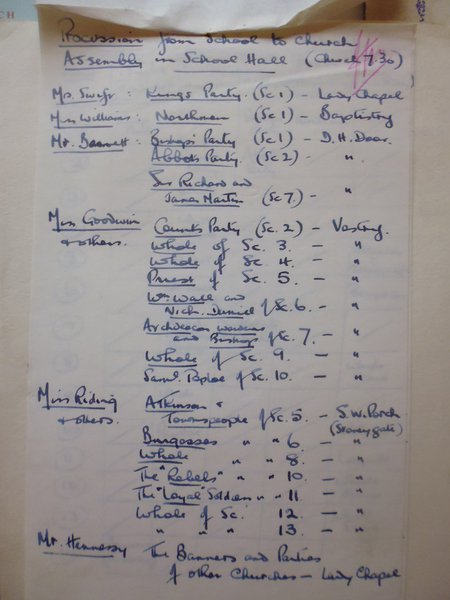 Procession from School to Church
Assembly in School Hall (Church 7.30)
Mr. Swift: King's Party (Sc 1) - Lady Chapel
Miss Williams: Northmen (Sc 1) - Baptistry
Mr. Bassnett: Bishop's Party (Sc 1) - D.H. Door.
Abbot's Party. (Sc 2) - "
Sir Richard and
James Martin (Sc 7.) - "
Miss Goodwin Count's Party (Sc. 2) - Vestry.
& others. Whole of Sc. 3. - "
Whole of Sc. 4. - "
Priest of Sc. 5. - "
Wm Wall and
Nich. Daniel of Sc. 6. - "
Archdeacon Wardens
and Bishop of Sc. 7. - "
Whole of Sc. 9. - "
Saml. Peploe of Sc. 10. - "
Miss Riding Atkinson &
& others. Townspeople of Sc. 5 - S.W. Porch
(Stoneygate)
Burgesses " " 6 - "
Whole " " 8. - "
The "Rebels" " " 10. - "
The "Loyal" Soldiers " " 11 - "
Whole of Sc. 12. - "
" " " 13. - "
Mr. Hennessy The Banners and Parties
of other Churches - Lady Chapel